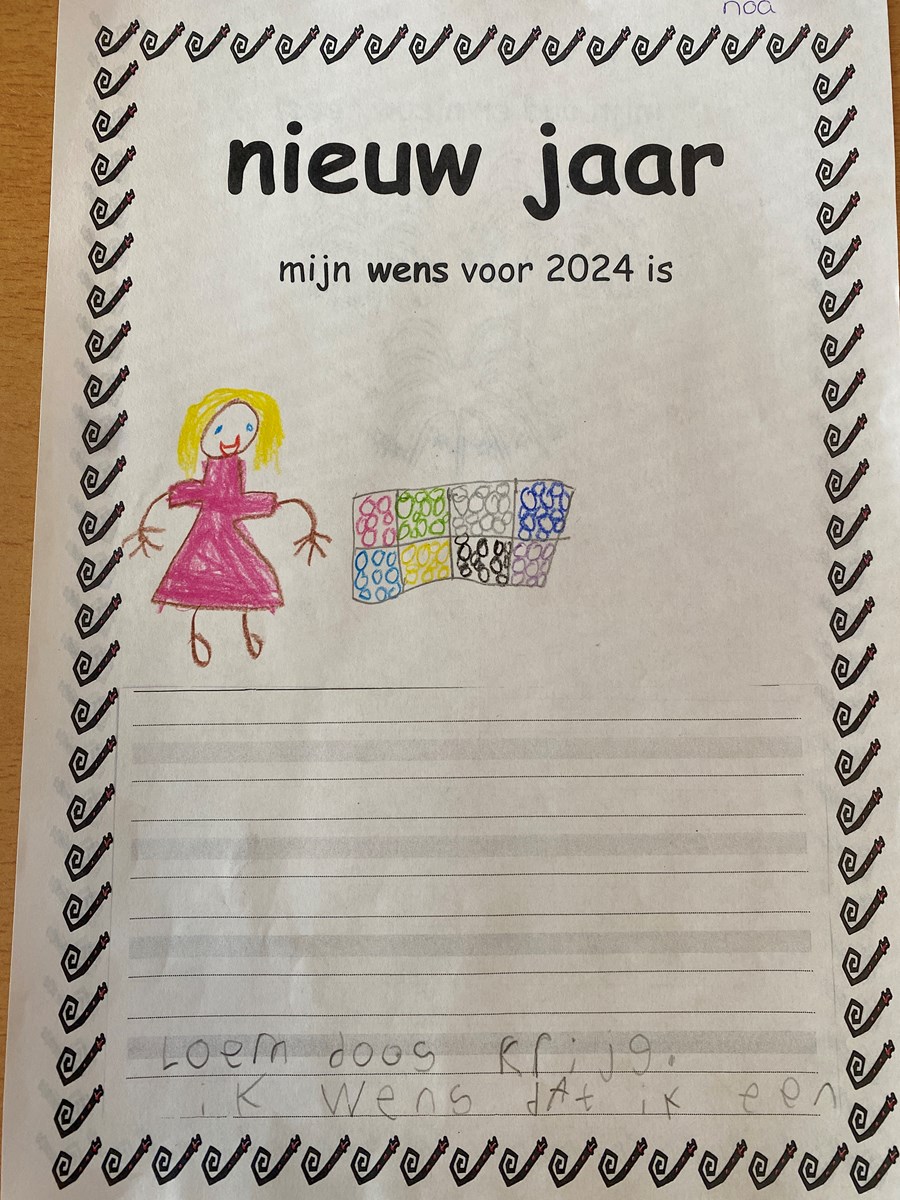 noa
nieuw jaar
mijn wens voor 2024 is
Loem doos krijg.
ik wens dat ik een